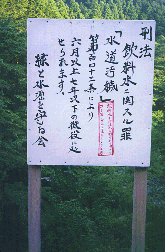 刑法
飲料水ニ関スル罪
「水道汚穢」
第百四十二条により
六月以上七年以下の懲役に処
せられます。
緑と水源を守る会